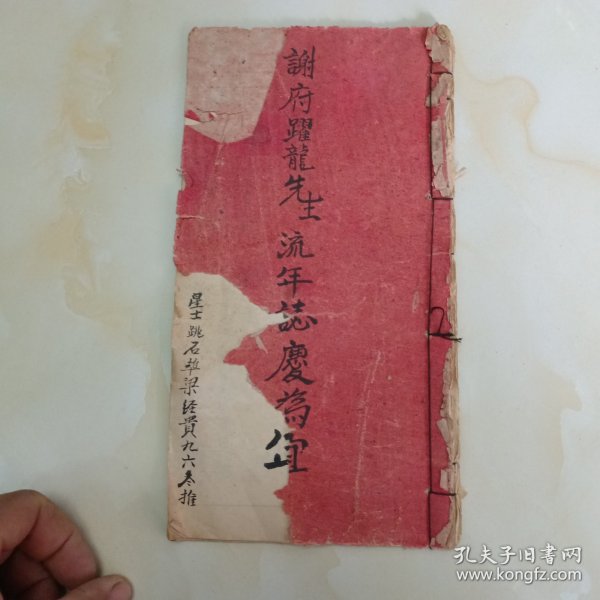 謝府躍龍先生流年誌慶為宜
星士跳石牛梁経貴九六叁推
孔夫子旧书网
www.kongfz.com